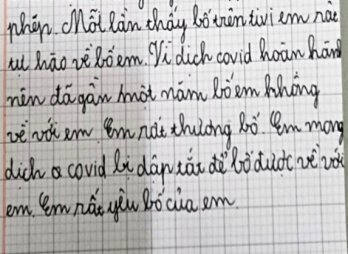 phến. Mỗi lần thấy bố trên tivi em rất
tự hào về bố em. Vì dịch covid hoàn hàn
nên đã gần một năm bố em không
về với em. Em rất thương bố. Em mong
dịch a covid bị dập tắt để bố được về với
em. Em rất yêu bố của em.